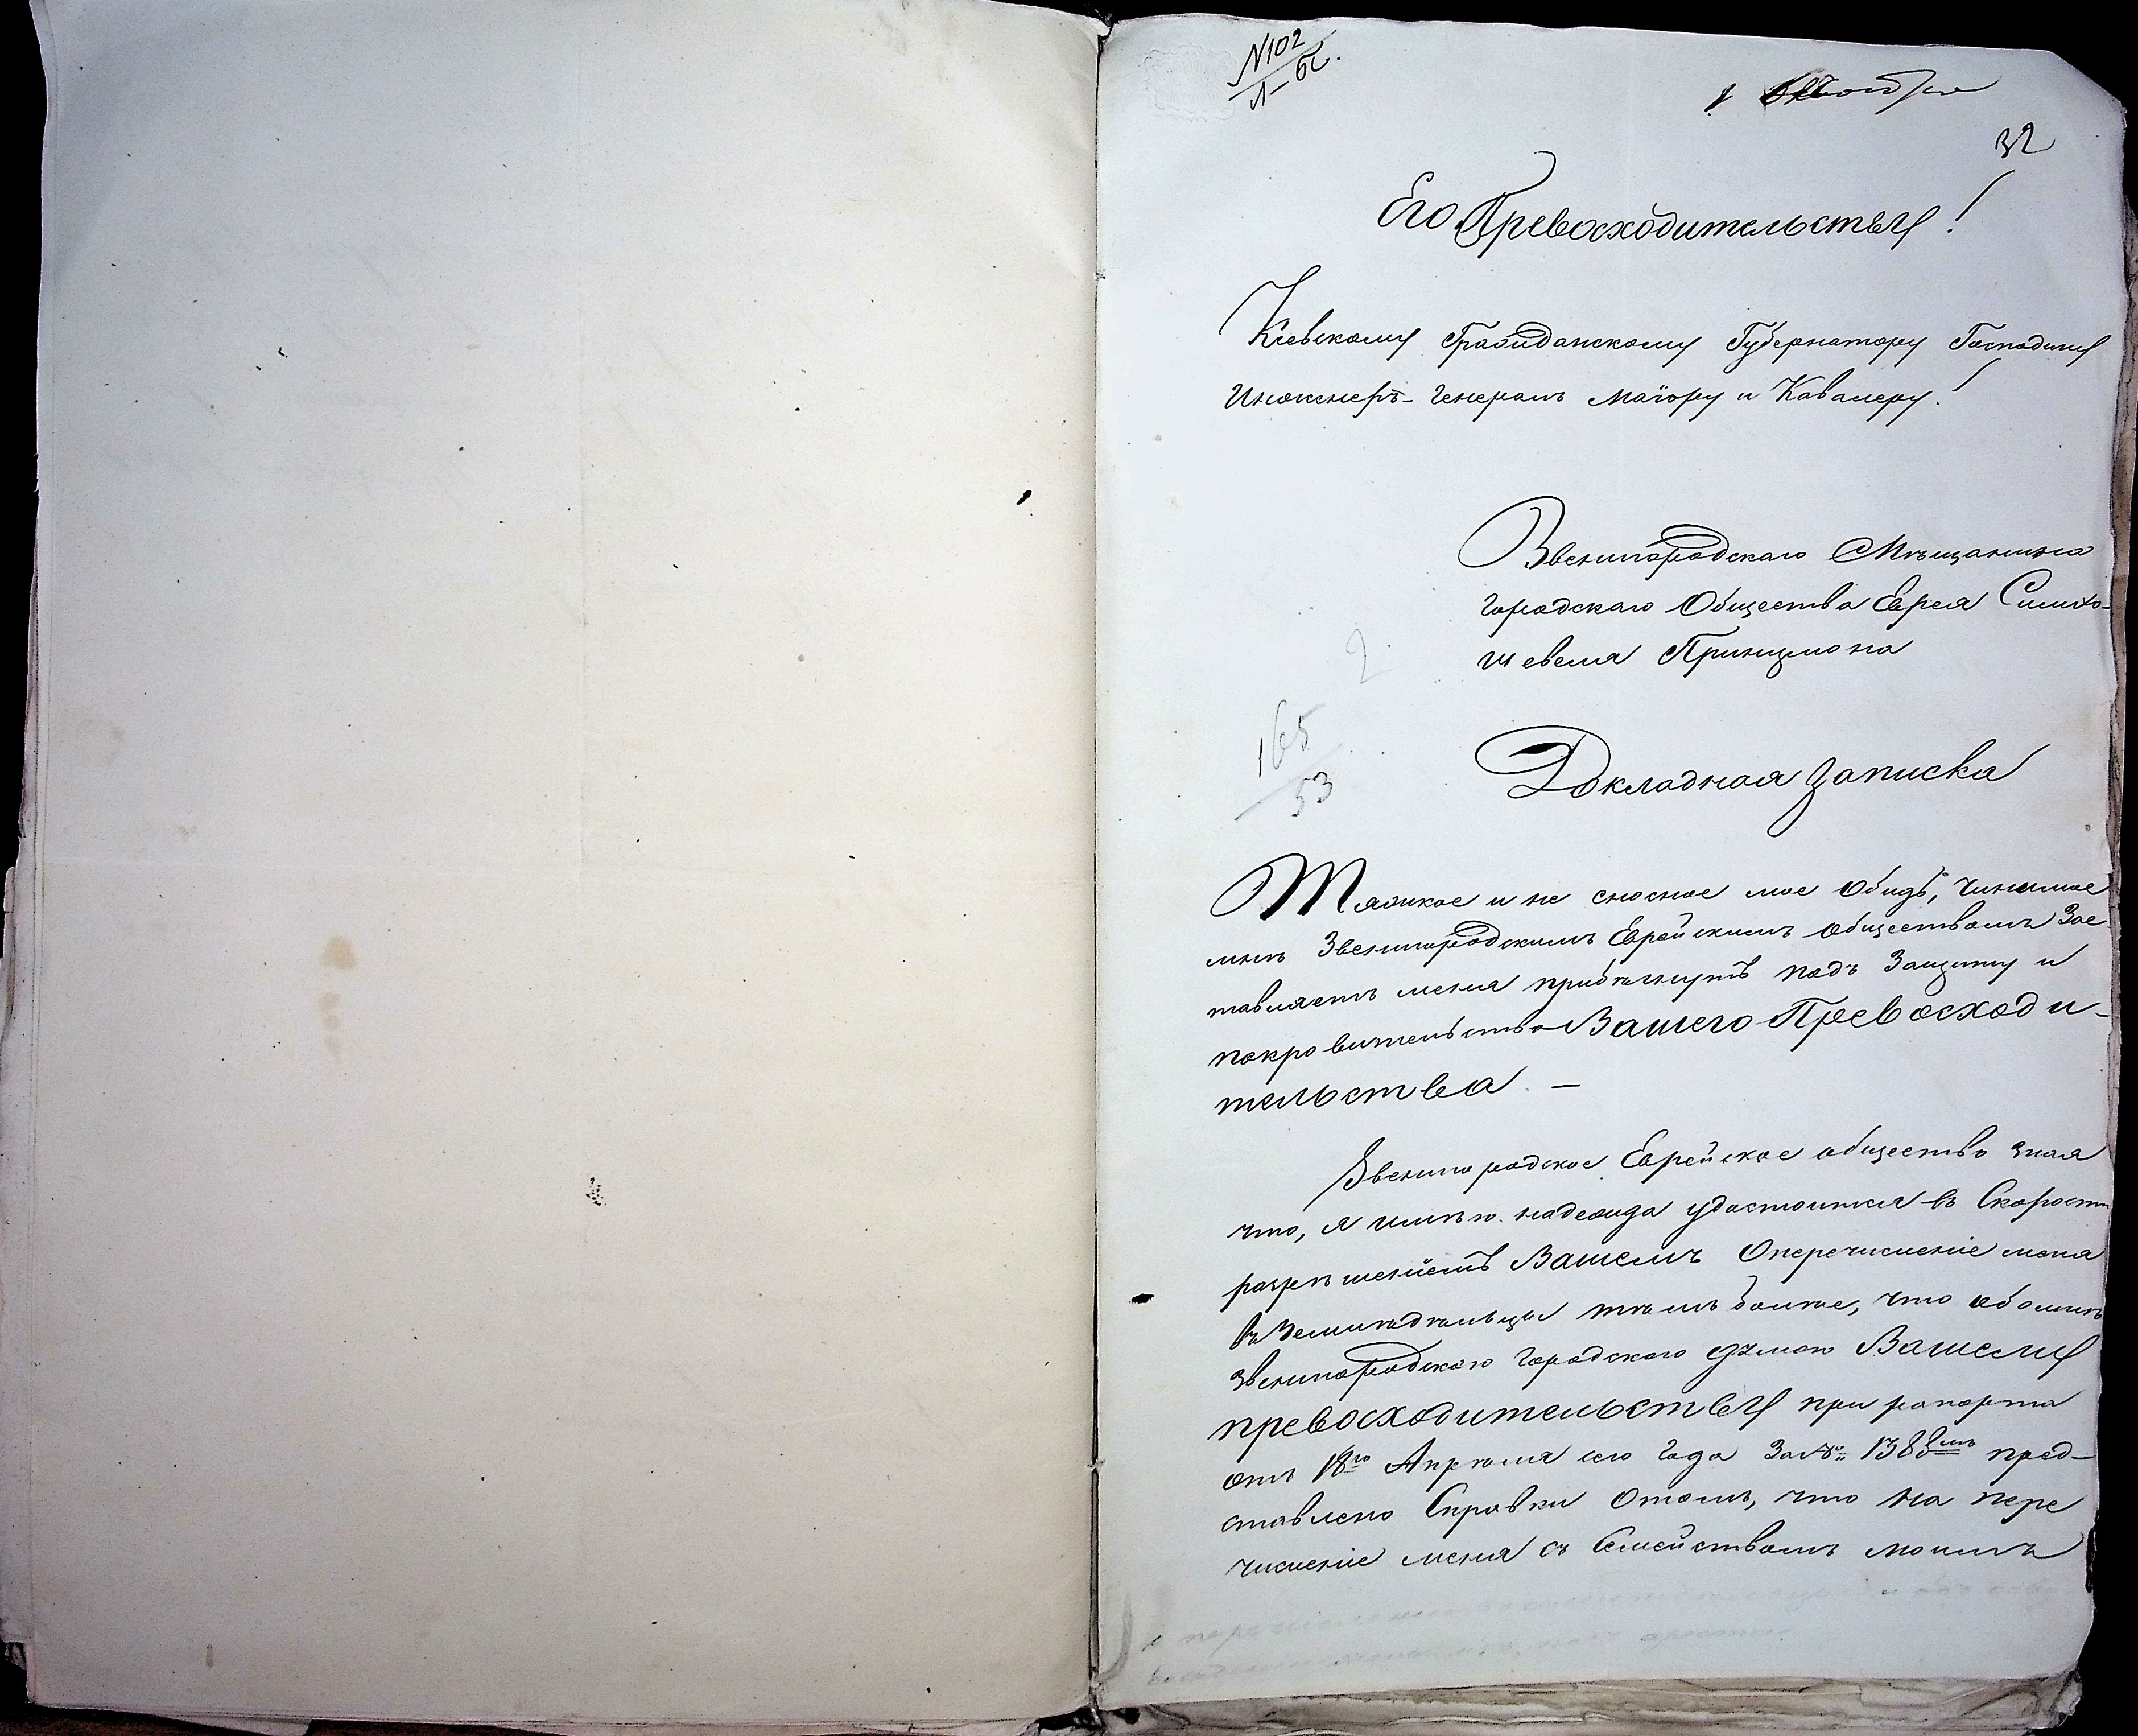 N102
32
Его Превосходительству!
Кіевскому Гражданскому Губернатору Господину
Инженеръ-Генералъ Маіору и Кавалеру!
Звенигородскаго Мѣщанина
городскаго Общества Еврея Симхо-
шевеля Принцмона
2
165
53
Докладная Записка
Тяжкое и не сносное мое Обидѣ, Чинимое
мнѣ Звенигородскимъ Еврейскимъ Обществомъ Зас
тавляетъ меня прибѣгнутъ подъ Защиту и
покровительство Вашего Превосходи-
тельства. —
Звенигородское Еврейское общество зная
что, я имѣю надежда удостоится въ Скорости
разрѣшеніемъ Вашемъ Оперечисленіе меня
въ Земледѣльцы тѣмъ болѣе, что обо мнѣ
звенигородскою городскою думою Вашему
превосходительству при рапорта
отъ 18го Апрѣля сего Года За № 1383мъ пред-
ставлено Справки Отомъ, что на пере
численіе меня съ Семействомъ моимъ